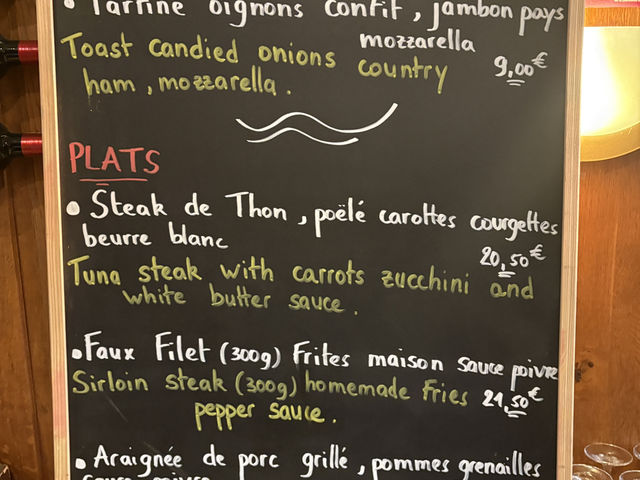 • Tartine oignons confit, jambon pays
mozzarella
Toast candied onions country
ham, mozzarella. 9,00€
PLATS
• Steak de Thon, poëlé carottes courgettes
beurre blanc 20,50€
Tuna steak with carrots zucchini and
white butter sauce.
• Faux Filet (300g) Frites maison sauce poivre
Sirloin steak (300g) homemade fries 21,50€
pepper sauce.
• Araignée de porc grillé, pommes grenailles
sauce poivre